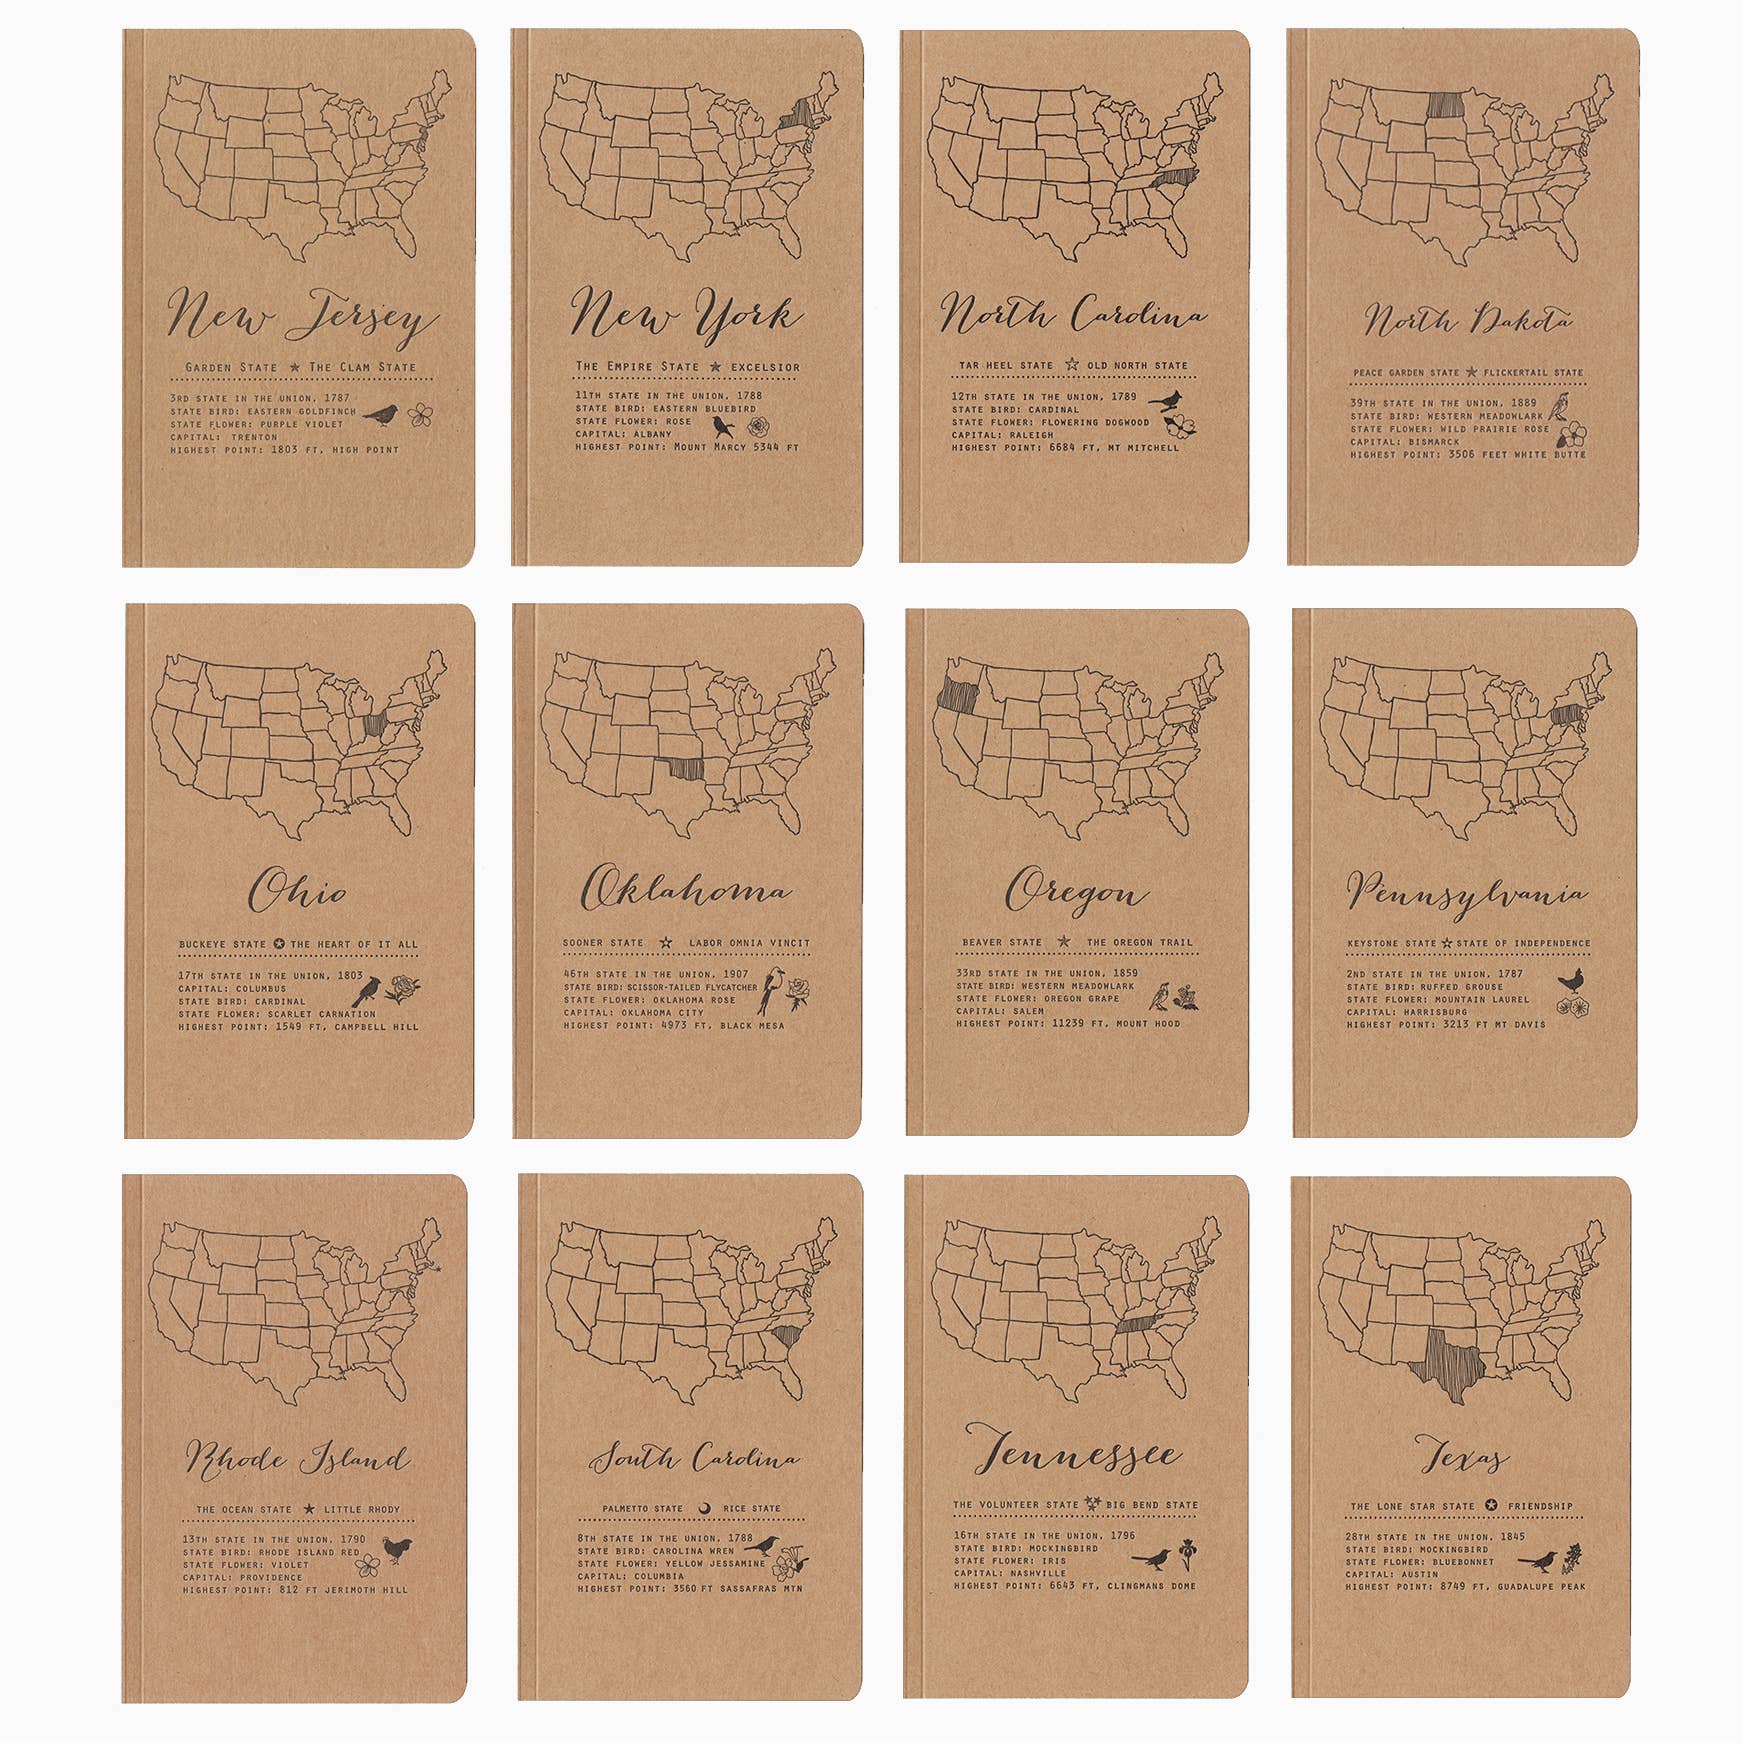 New Jersey
GARDEN STATE ★ THE CLAM STATE
3RD STATE IN THE UNION, 1787
STATE BIRD: EASTERN GOLDFINCH
STATE FLOWER: PURPLE VIOLET
CAPITAL: TRENTON
HIGHEST POINT: 1803 FT, HIGH POINT
New York
THE EMPIRE STATE ★ EXCELSIOR
11TH STATE IN THE UNION, 1788
STATE BIRD: EASTERN BLUEBIRD
STATE FLOWER: ROSE
CAPITAL: ALBANY
HIGHEST POINT: MOUNT MARCY 5344 FT
North Carolina
TAR HEEL STATE ☆ OLD NORTH STATE
12TH STATE IN THE UNION, 1789
STATE BIRD: CARDINAL
STATE FLOWER: FLOWERING DOGWOOD
CAPITAL: RALEIGH
HIGHEST POINT: 6684 FT, MT MITCHELL
North Dakota
PEACE GARDEN STATE ★ FLICKERTAIL STATE
39TH STATE IN THE UNION, 1889
STATE BIRD: WESTERN MEADOWLARK
STATE FLOWER: WILD PRAIRIE ROSE
CAPITAL: BISMARCK
HIGHEST POINT: 3506 FEET WHITE BUTTE
Ohio
BUCKEYE STATE ✪ THE HEART OF IT ALL
17TH STATE IN THE UNION, 1803
CAPITAL: COLUMBUS
STATE BIRD: CARDINAL
STATE FLOWER: SCARLET CARNATION
HIGHEST POINT: 1549 FT, CAMPBELL HILL
Oklahoma
SOONER STATE ☆ LABOR OMNIA VINCIT
46TH STATE IN THE UNION, 1907
STATE BIRD: SCISSOR-TAILED FLYCATCHER
STATE FLOWER: OKLAHOMA ROSE
CAPITAL: OKLAHOMA CITY
HIGHEST POINT: 4973 FT, BLACK MESA
Oregon
BEAVER STATE ★ THE OREGON TRAIL
33RD STATE IN THE UNION, 1859
STATE BIRD: WESTERN MEADOWLARK
STATE FLOWER: OREGON GRAPE
CAPITAL: SALEM
HIGHEST POINT: 11239 FT, MOUNT HOOD
Pennsylvania
KEYSTONE STATE ☆ STATE OF INDEPENDENCE
2ND STATE IN THE UNION, 1787
STATE BIRD: RUFFED GROUSE
STATE FLOWER: MOUNTAIN LAUREL
CAPITAL: HARRISBURG
HIGHEST POINT: 3213 FT MT DAVIS
Rhode Island
THE OCEAN STATE ★ LITTLE RHODY
13TH STATE IN THE UNION, 1790
STATE BIRD: RHODE ISLAND RED
STATE FLOWER: VIOLET
CAPITAL: PROVIDENCE
HIGHEST POINT: 812 FT JERIMOTH HILL
South Carolina
PALMETTO STATE ☾ RICE STATE
8TH STATE IN THE UNION, 1788
STATE BIRD: CAROLINA WREN
STATE FLOWER: YELLOW JESSAMINE
CAPITAL: COLUMBIA
HIGHEST POINT: 3560 FT SASSAFRAS MTN
Tennessee
THE VOLUNTEER STATE BIG BEND STATE
16TH STATE IN THE UNION, 1796
STATE BIRD: MOCKINGBIRD
STATE FLOWER: IRIS
CAPITAL: NASHVILLE
HIGHEST POINT: 6643 FT, CLINGMANS DOME
Texas
THE LONE STAR STATE ✪ FRIENDSHIP
28TH STATE IN THE UNION, 1845
STATE BIRD: MOCKINGBIRD
STATE FLOWER: BLUEBONNET
CAPITAL: AUSTIN
HIGHEST POINT: 8749 FT, GUADALUPE PEAK